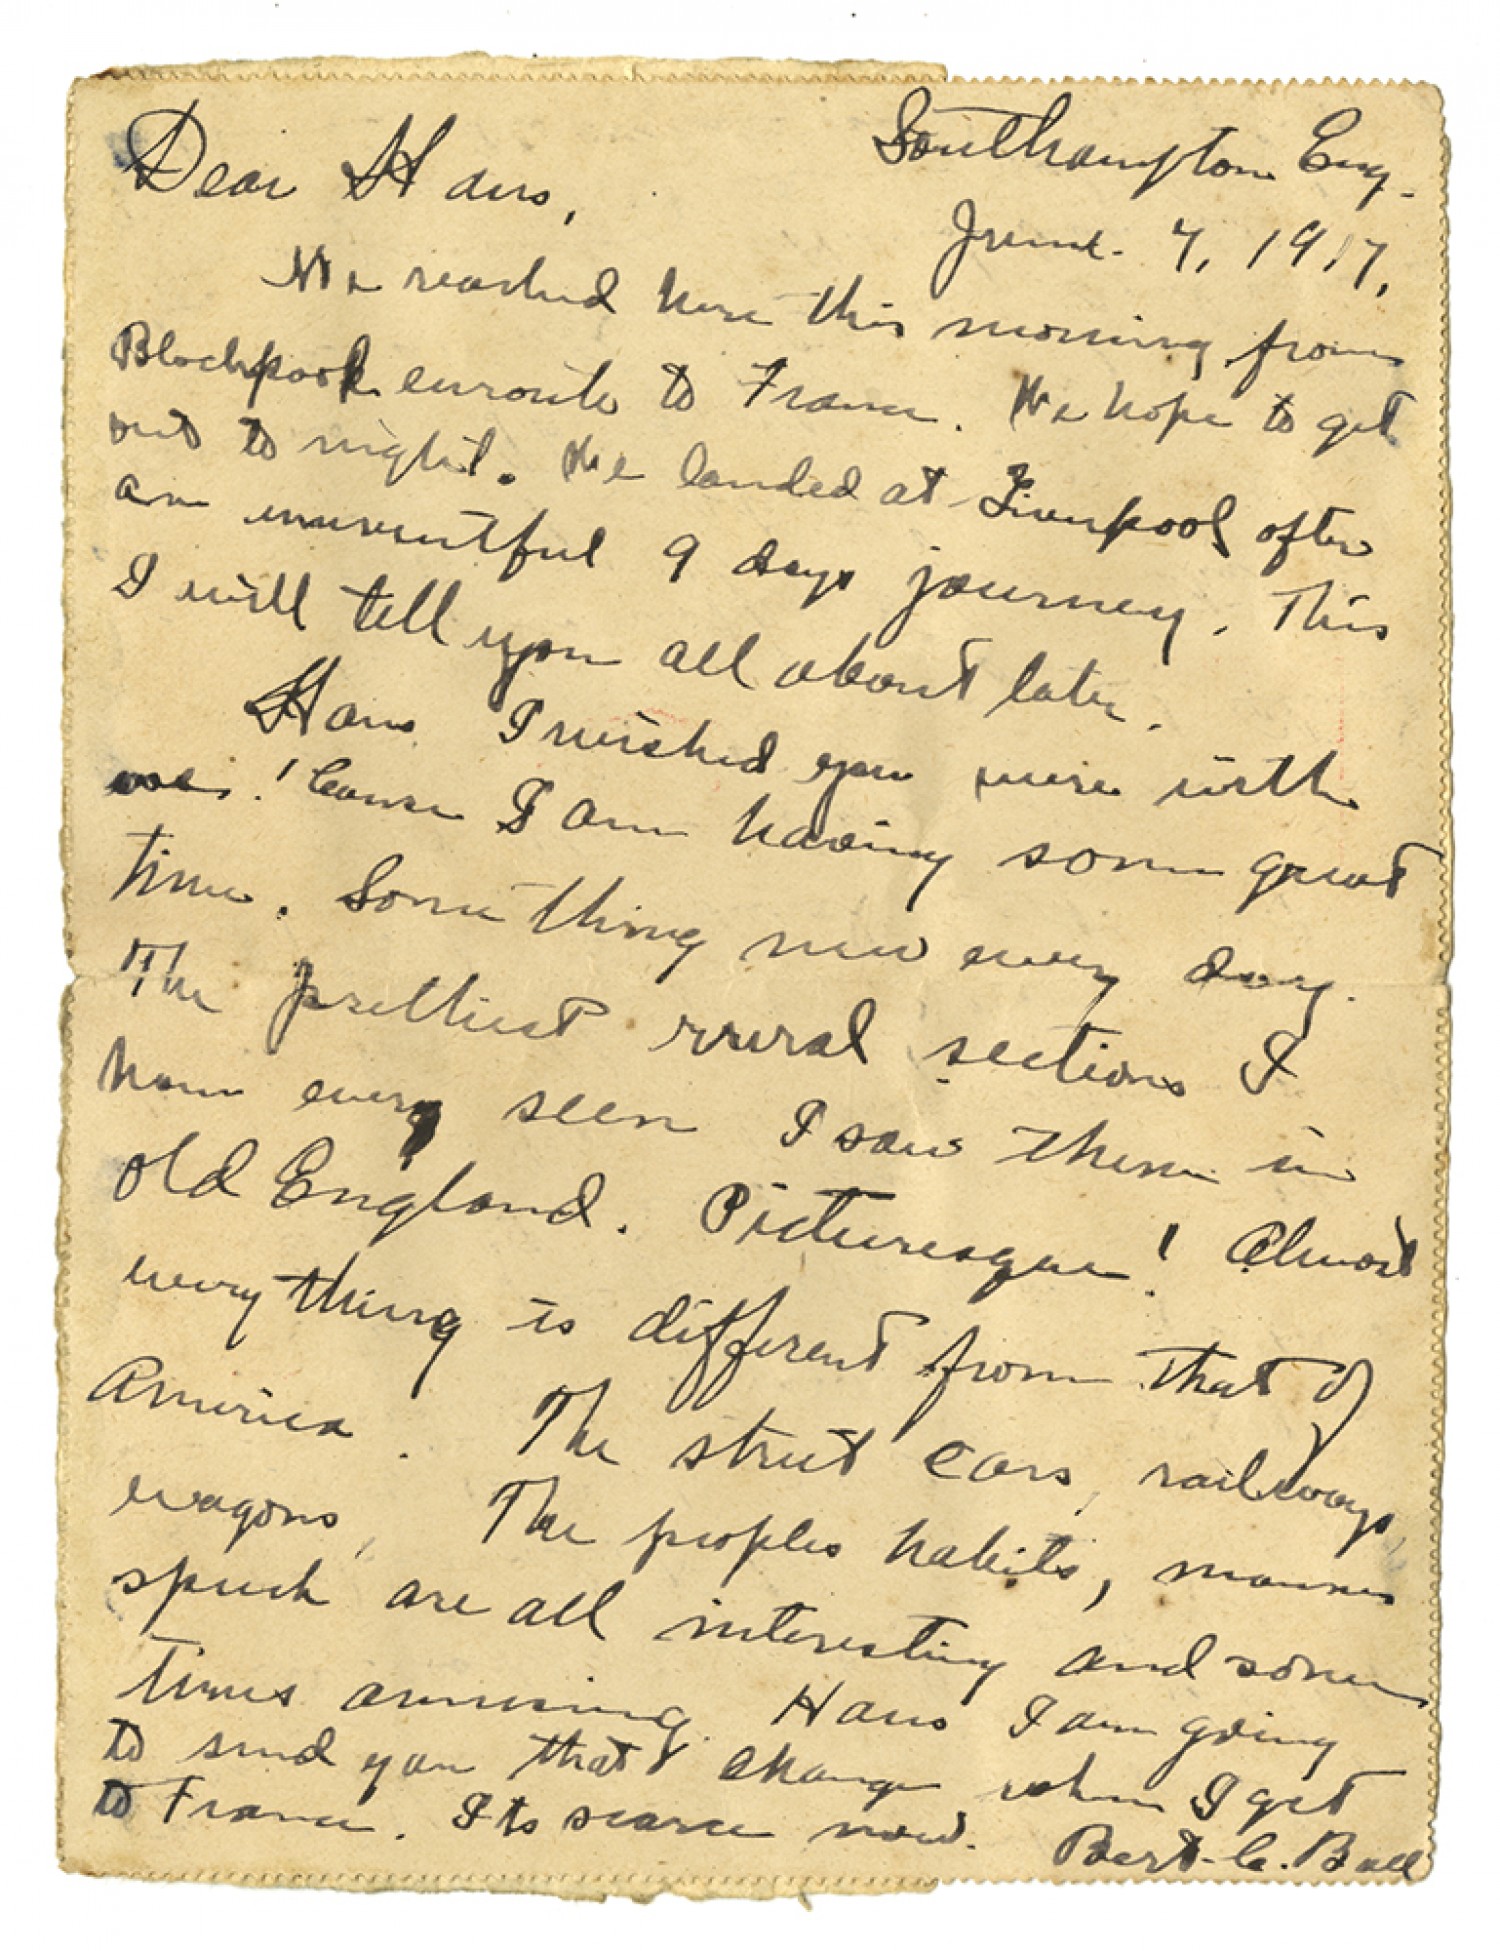 Southampton Eng.
Dear Hans,
June 7, 1917,
We reached here this morning from
Blackpool enroute to France. We hope to get
out to night. We landed at Liverpool after
an uneventful 9 days journey. This
I will tell you all about later.
Hans I wished you were with
me! Cause I am having some great
time. Some thing new every day.
The prettiest rural sections I
have every seen I saw them in
old England. Picturesque! Almost
every thing is different from that of
America. The street cars, railways,
wagons, The peoples habits, manners
speech are all interesting and some
times amusing. Hans I am going
to send you that change when I get
to France. Its scarce now. Bert C. Ball